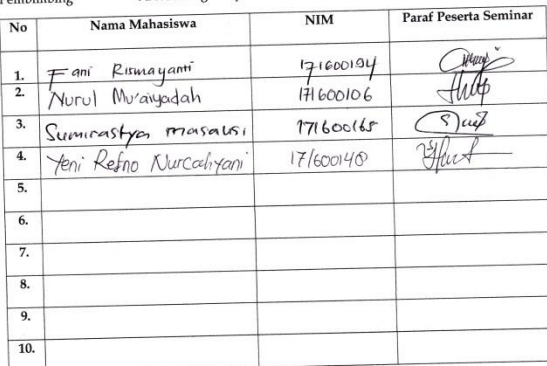 No Nama Mahasiswa NIM Paraf Peserta Seminar
1. Fani Rismayanti 171600194
2. Nurul Mu'aiyadah 171600106
3. Sumirastya masausi 171600165
4. Yeni Retno Nurcahyani 171600140
5.
6.
7.
8.
9.
10.